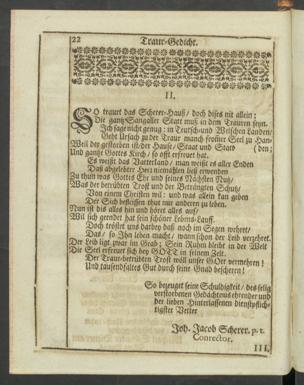 22
Traur-Gedicht.
II.
SO traurt das Scherer-Hauß / doch dises nit allein;
Die gantz Sangaller Statt muß in dem Trauren seyn.
Ich sage nicht genug: in Teutsch-und Welschen Landen /
Geht Ursach zu der Traur manch frommer Seel zu Han-
Weil der gestorben ist / der Hause / Staat und Statt (den;
Und gantze Gottes Kirch / so offt erfreuet hat.
Es weißt das Vatterland / man weißt es aller Enden
Das abgelebte Hertz niemahlen ließ erwenden
Zu thun was Gottes Ehr und seines Nächsten Nutz /
Was der betrübten Trost und der Beträngten Schutz /
Von einem Christen wil: und was allein kan geben
Der Sich befleissen thut nur anderen zu leben.
Nun ist diß alles hin und höret alles auf /
Weil sich geendet hat sein schöner Lebens-Lauff.
Doch tröstet uns darbey daß noch im Segen wehret /
Das / so Ihn leben macht / wann schon der Leib verzehret.
Der Leib ligt zwar im Grab; Sein Ruhm bleibt in der Welt
Die Seel erfreuet sich bey GOTT in seinem Zelt.
Der Traur-betrübten Trost wöll unser GOtt vermehren!
Und tausendfaltes Gut durch seine Gnad bescheren!
So bezeuget seine Schuldigkeit / des selig
verstorbenen Gedächtnus ehrender und
der lieben Hinterlassenen dienstpflich-
tigster Vetter
Joh. Jacob Scherer. p. t.
Conrector.
III.